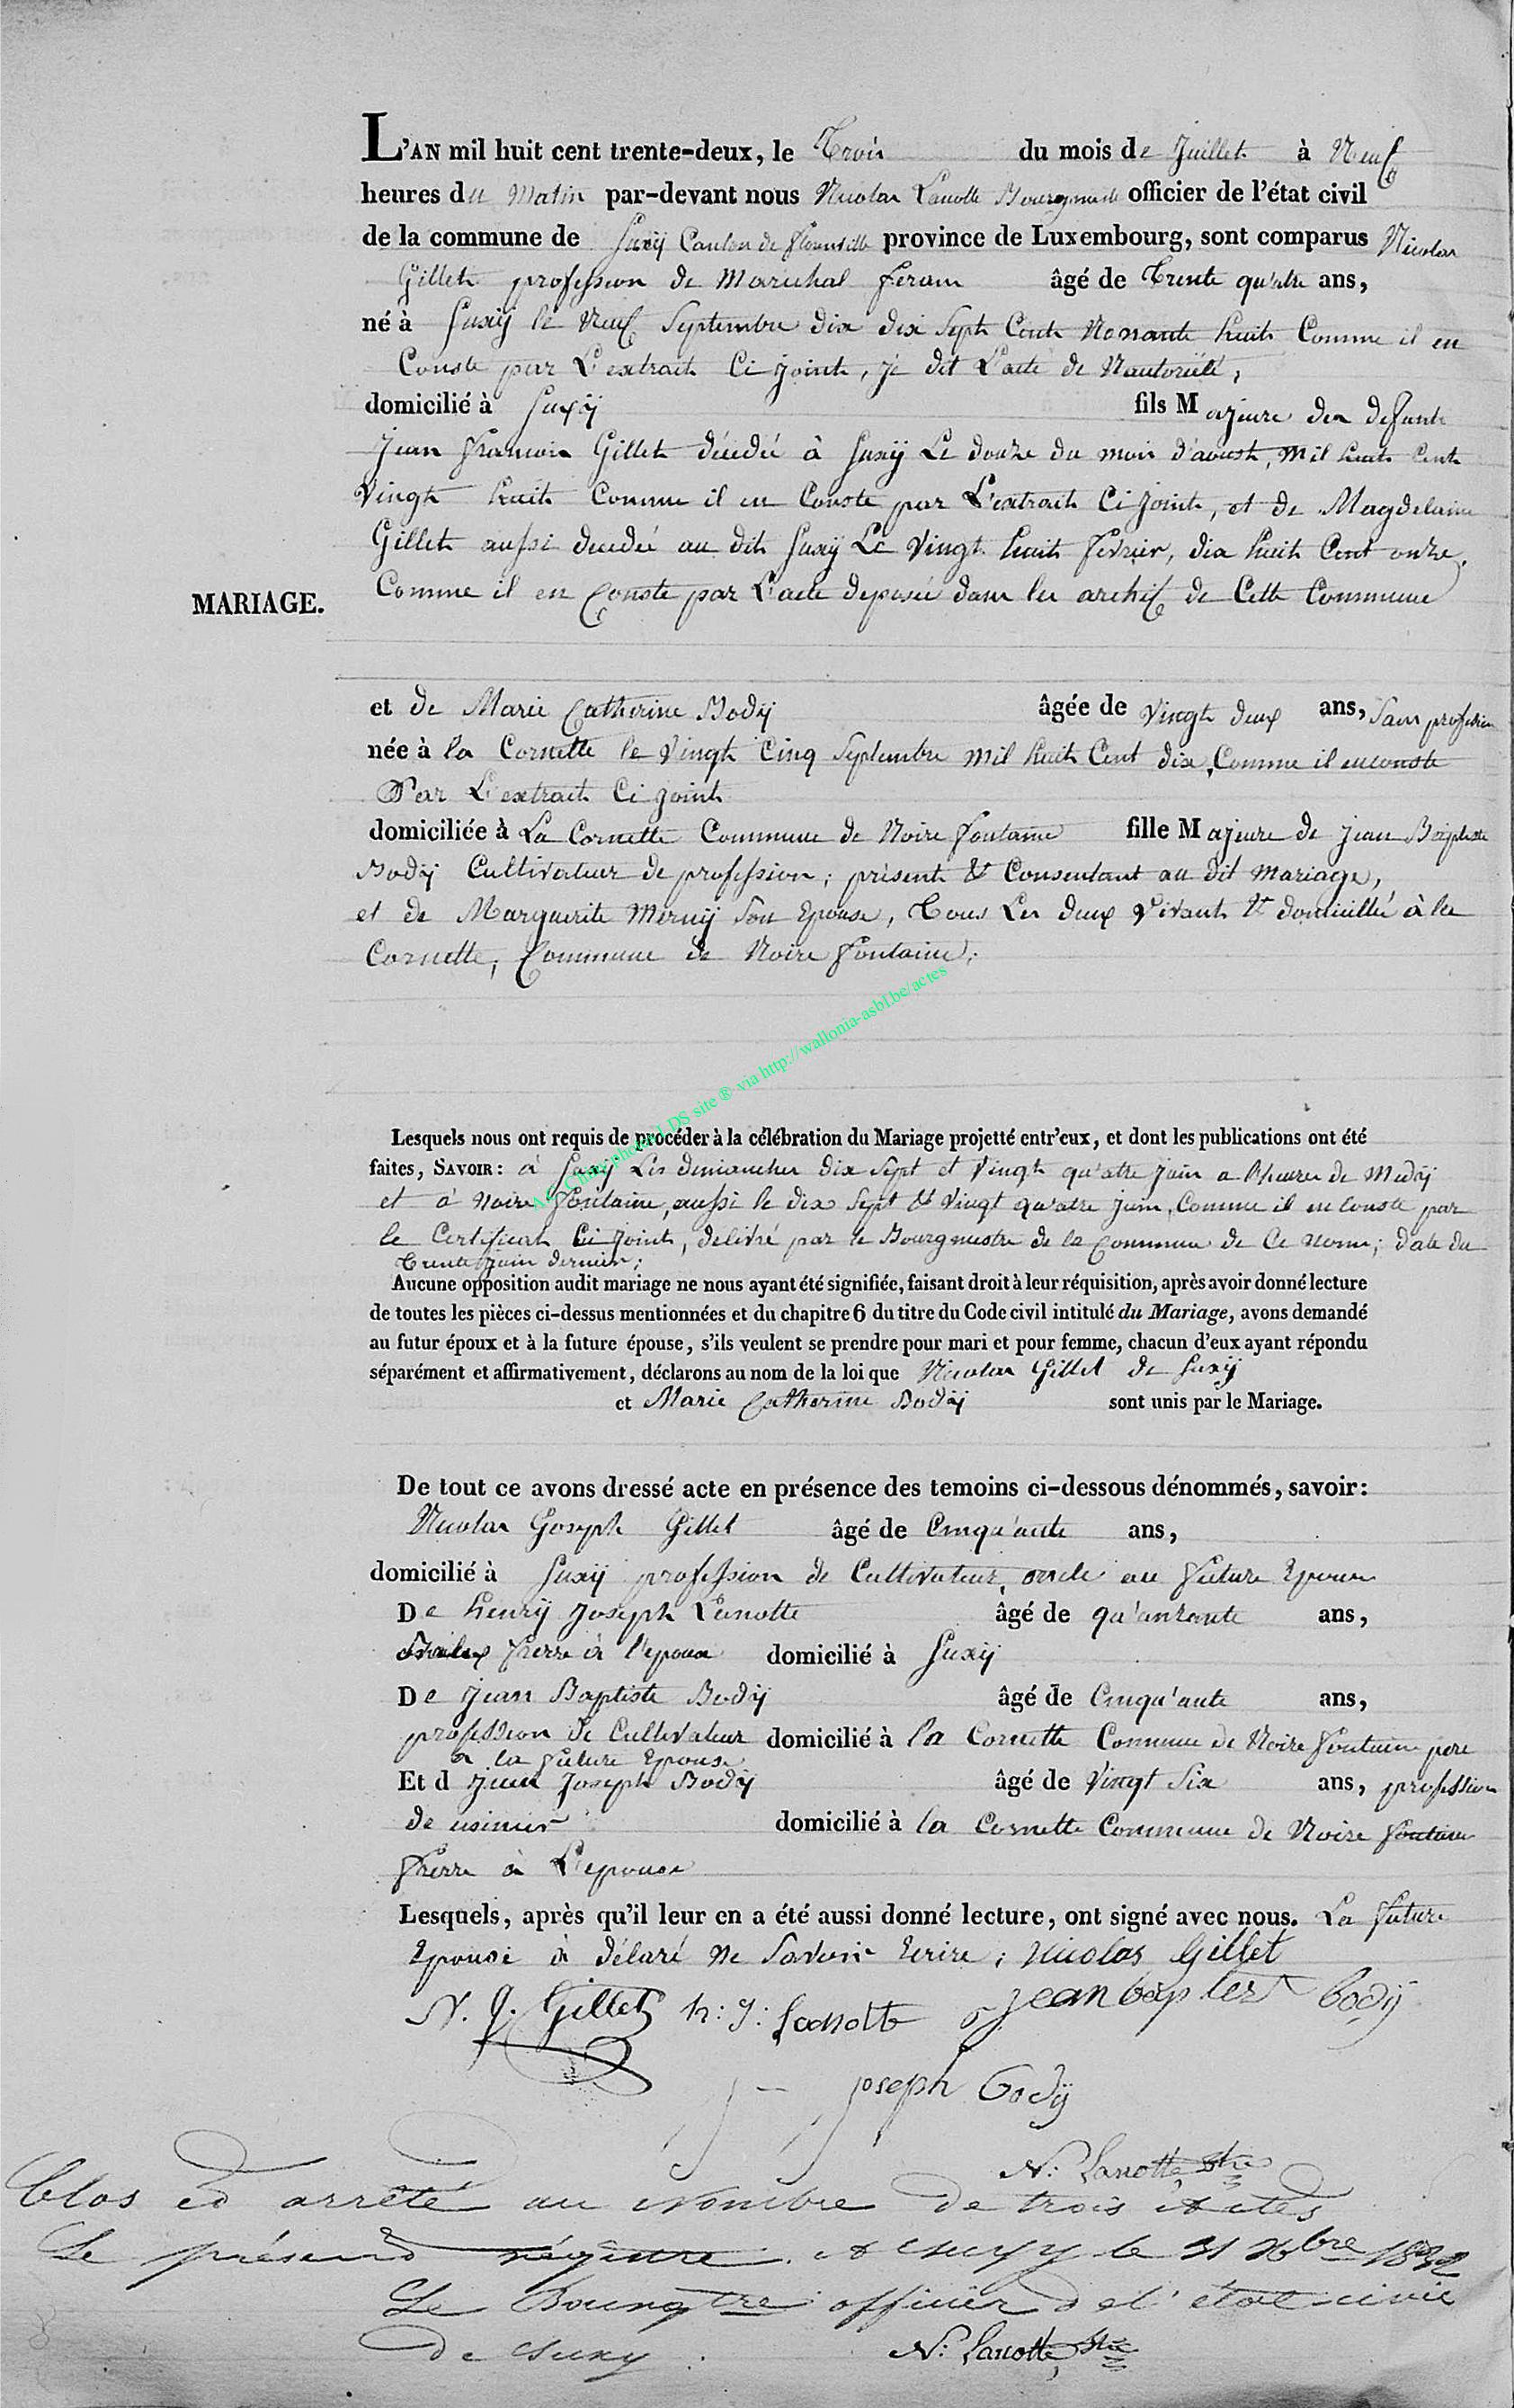 L'AN mil huit cent trente-deux, le Trois du mois de Juillet à Neuf
heures du Matin par-devant nous Nicolas Lanotte Bourgmestre officier de l'état civil
de la commune de Suxÿ Canton de Florenville province de Luxembourg, sont comparus Nicolas
Gillet profession de Marichal feran âgé de Trente qu'atre ans,
né à Suxÿ le Neuf Septembre dix dix Sept Cent Nonante huit Comme il en
Conste par L'extrait Ci joint, je dit L'acte de Nautoriété,
domicilié à Suxÿ fils Majeure des defunts
Jean François Gillet décédé à Suxÿ Le douze du mois d'aoust, mil huit Cent
Vingt huit Comme il en Conste par L'extrait Ci joint, et de Magdelaine
Gillet aussi decedée au dit Suxÿ Le Vingt huit fevrier, dix huit Cent onze,
MARIAGE.
Comme il en Conste par L'acte deposée dans les archif de Cette Commune
et de Marie Catherine Bodÿ âgée de Vingt deux ans, Sans profession
née à la Cornette le Vingt Cinq Septembre mil huit Cent dix, Comme il en conste
Par L'extrait Ci joint
domiciliée à La Cornette Commune de Noire fontaine fille Majeure de jean Baptiste
Bodÿ Cultivateur de profession; présent & Consentant au dit mariage,
et de Marguerite Mernÿ Son Epouse, Tous Les deux Vivant & domicillié à la
Cornette, Commune de Noire fontaine;
via http://wallonia-asbl.be/actes
Lesquels nous ont requis de procéder à la célébration du Mariage projetté entr'eux, et dont les publications ont été
faites, SAVOIR: à Suxÿ Les dimanches dix sept et Vingt qu'atre juin a l'heure de Midÿ
et à Noire fontaine, aussi le dix Sept & Vingt qu'atre juin, Comme il en Conste par
le Certificat Ci joint, delivré par le Bourgmestre de la Commune de Ce nom; date du
Trente juin dernier;
Aucune opposition audit mariage ne nous ayant été signifiée, faisant droit à leur réquisition, après avoir donné lecture
de toutes les pièces ci-dessus mentionnées et du chapitre 6 du titre du Code civil intitulé du Mariage, avons demandé
au futur époux et à la future épouse, s'ils veulent se prendre pour mari et pour femme, chacun d'eux ayant répondu
séparément et affirmativement, déclarons au nom de la loi que Nicolas Gillet de Suxÿ
et Marie Catherine Bodÿ sont unis par le Mariage.
De tout ce avons dressé acte en présence des temoins ci-dessous dénommés, savoir:
Nicolas Joseph Gillet âgé de Cinqu'ante ans,
domicilié à Suxÿ profession de Cultivateur, oncle au future Epoux
De henrÿ Joseph Lanotte âgé de qu'anrante ans,
frerre à l'epoux domicilié à Suxÿ
De Jean Baptiste Bodÿ âgé de Cinqu'ante ans,
profession de Cultivateur domicilié à la Cornette Commune de Noire fontaine pere
a la future Epouse
Et d Jean Joseph Bodÿ âgé de Vingt Six ans, profession
de usinier domicilié à la Cornette Commune de Noire fontaine
frerre à L'epouse
Lesquels, après qu'il leur en a été aussi donné lecture, ont signé avec nous. La future
Epouse à déclaré ne Savoir Ecrire; Nicolas Gillet
N. J. Gillet h: J: Lanotte jean baptiest bodÿ
j joseph bodÿ
N: Lanotte, Btre
Clos et arrêté au nombre de trois actes
Le présent régistre. A Suxy le 31 Xbre 1832
Le Bourgtre officier de l'état civil
de Suxy. N: Lanotte, Btre